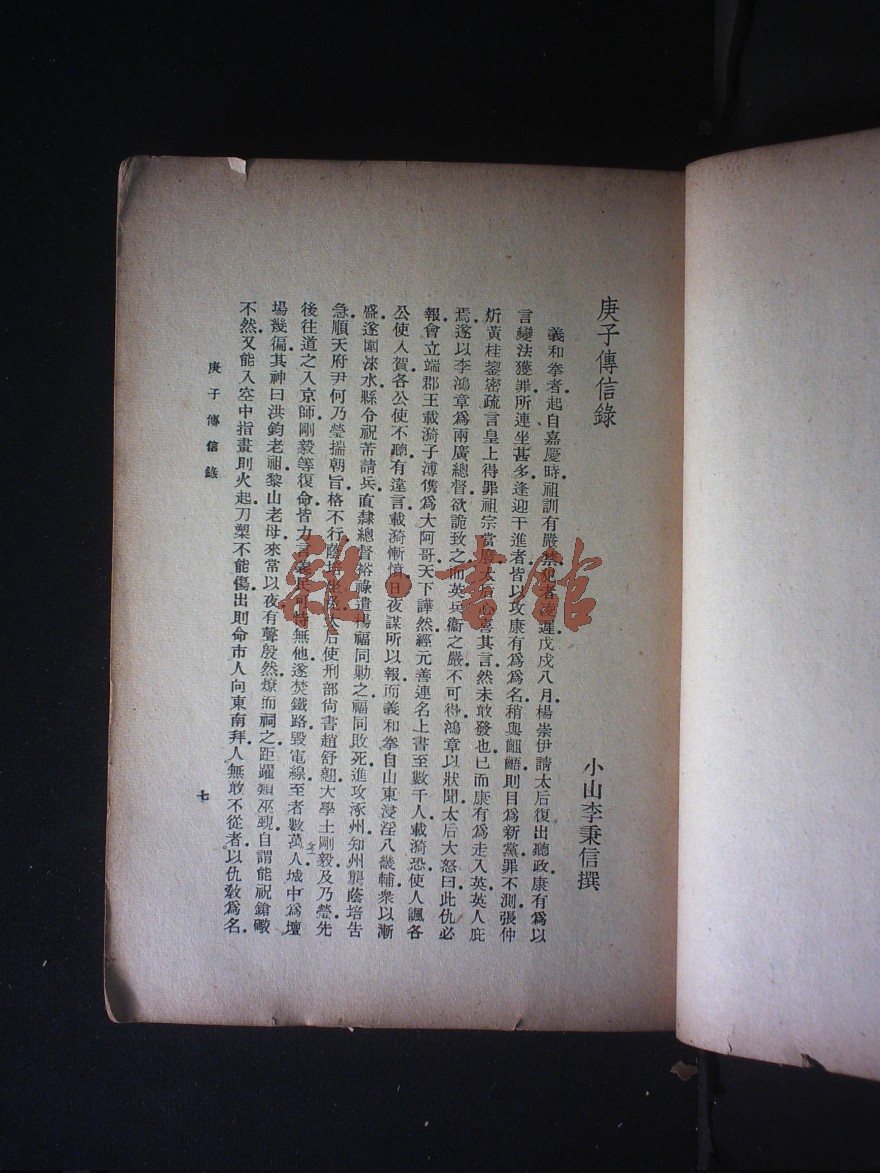 庚子傳信錄
小山李秉信撰
義和拳者起自嘉慶時祖訓有嚴禁犯者凌遲戊戌八月楊崇伊請太后復出聽政康有爲以
言變法獲罪所連坐甚多逢迎干進者皆以攻康有爲爲名稍與齟齬則目爲新黨罪不測張仲
炘黃桂鋆密疏言皇上得罪祖宗當廢太后心喜其言然未敢發也已而康有爲走入英英人庇
焉遂以李鴻章爲兩廣總督欲詭致之而英兵衞之嚴不可得鴻章以狀聞太后大怒曰此仇必
報會立端郡王載漪子溥儁爲大阿哥天下譁然經元善連名上書至數千人載漪恐使人諷各
公使入賀各公使不聽有違言載漪慚憤日夜謀所以報而義和拳自山東浸淫入畿輔衆以漸
盛遂圍淶水縣令祝芾請兵直隸總督裕祿遣楊福同勦之福同敗死進攻涿州知州龔蔭培告
急順天府尹何乃瑩揣朝旨格不行蔭培坐免太后使刑部尚書趙舒翹大學士剛毅及乃瑩先
後往道之入京師剛毅等復命皆力言義民可恃無他遂焚鐵路毀電線至者數萬人城中爲壇
場幾徧其神曰洪鈞老祖黎山老母來常以夜有聲殷然燎而祠之距躍類巫覡自謂能祝鎗礮
不然又能入空中指畫則火起刀槊不能傷出則命市人向東南拜人無敢不從者以仇敎爲名
庚子傳信錄
七
雜·書館